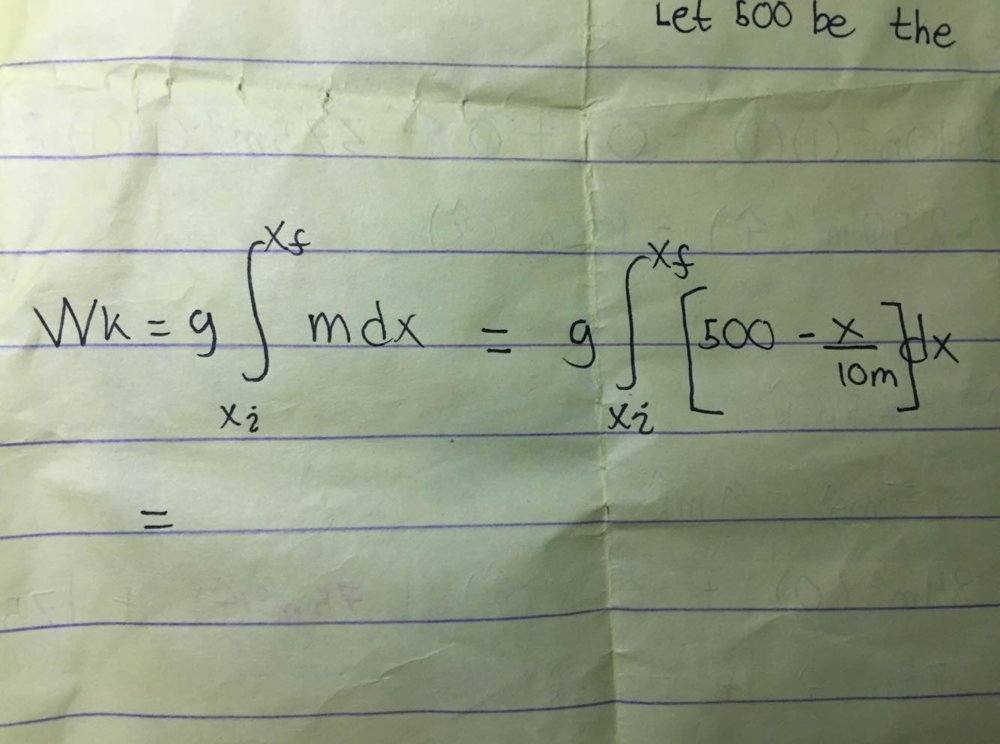 Let 500 be the
Wk = g ∫_{xi}^{xf} m dx = g ∫_{xi}^{xf} [500 - x/10m] dx
=